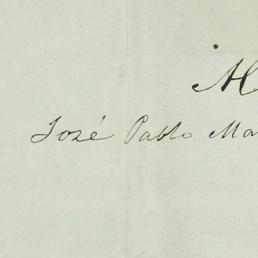 José Pablo Ma